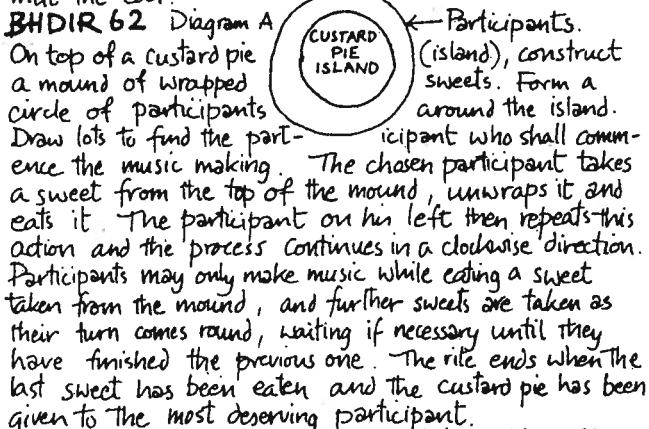 BHDIR 62 Diagram A
CUSTARD
PIE
ISLAND
Participants.
On top of a custard pie (island), construct
a mound of wrapped sweets. Form a
circle of participants around the island.
Draw lots to find the part- icipant who shall comm-
ence the music making. The chosen participant takes
a sweet from the top of the mound, unwraps it and
eats it The participant on his left then repeats this
action and the process continues in a clockwise direction.
Participants may only make music while eating a sweet
taken from the mound, and further sweets are taken as
their turn comes round, waiting if necessary until they
have finished the previous one. The rite ends when the
last sweet has been eaten and the custard pie has been
given to the most deserving participant.